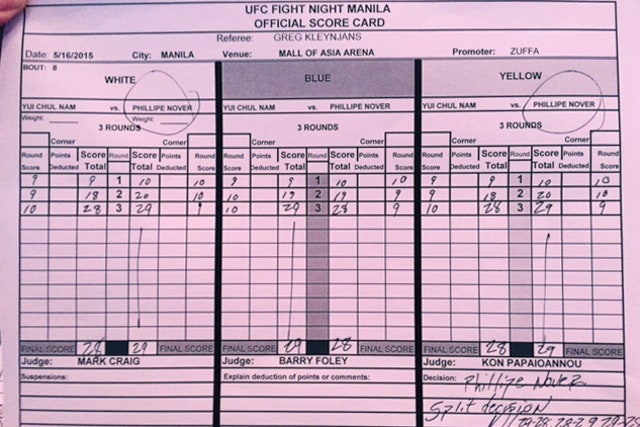 UFC FIGHT NIGHT MANILA
OFFICIAL SCORE CARD
Referee: GREG KLEYNJANS
Date: 5/16/2015 City: MANILA Venue: MALL OF ASIA ARENA Promoter: ZUFFA
BOUT: 8
WHITE BLUE YELLOW
YUI CHUL NAM vs. PHILLIPE NOVER YUI CHUL NAM vs. PHILLIPE NOVER YUI CHUL NAM vs. PHILLIPE NOVER
Weight: Weight:
3 ROUNDS 3 ROUNDS 3 ROUNDS
Corner Corner Corner Corner Corner Corner
Round Points Score Round Score Points Round Round Points Score Round Score Points Round Round Points Score Round Score Points Round
Score Deducted Total Total Deducted Score Score Deducted Total Total Deducted Score Score Deducted Total Total Deducted Score
9 9 1 10 10 9 9 1 10 10 9 9 1 10 10
9 18 2 20 10 10 19 2 19 9 9 18 2 20 10
10 28 3 29 9 10 29 3 28 9 10 28 3 29 9
FINAL SCORE 28 29 FINAL SCORE FINAL SCORE 29 28 FINAL SCORE FINAL SCORE 28 29 FINAL SCORE
Judge: MARK CRAIG Judge: BARRY FOLEY Judge: KON PAPAIOANNOU
Suspensions: Explain deduction of points or comments: Decision: Phillipe Nover
Split decision
29-28 28-29 29-28